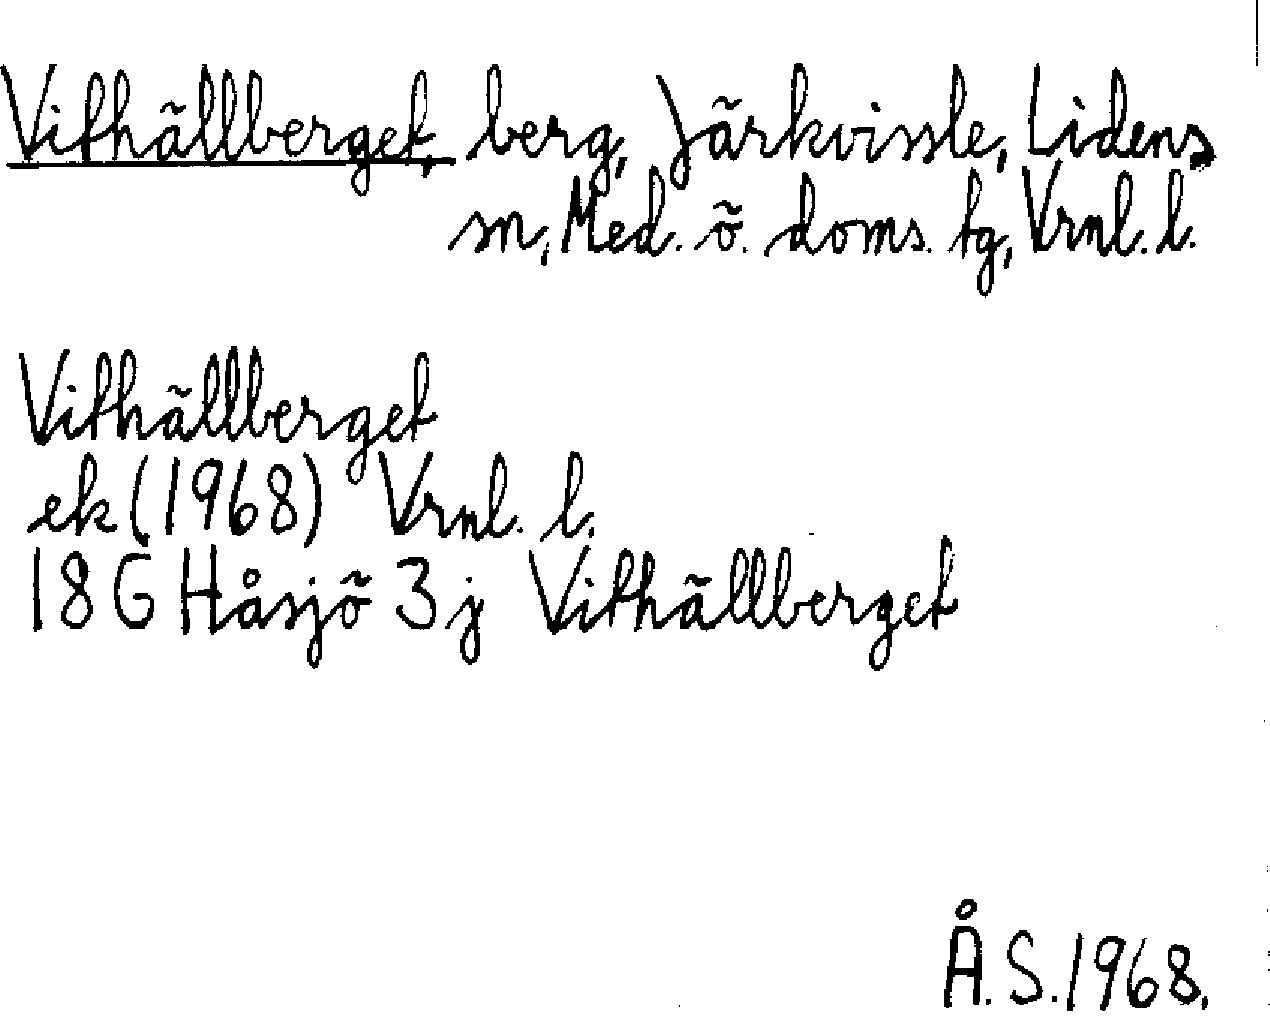 Vithällberget, berg, Järkvissle, Lidens
sn, Med. ö. doms. tg, Vrnl. l.
Vithällberget
ek (1968) Vrnl. l.
18 G Håsjö 3 j Vithällberget
Å. S. 1968.